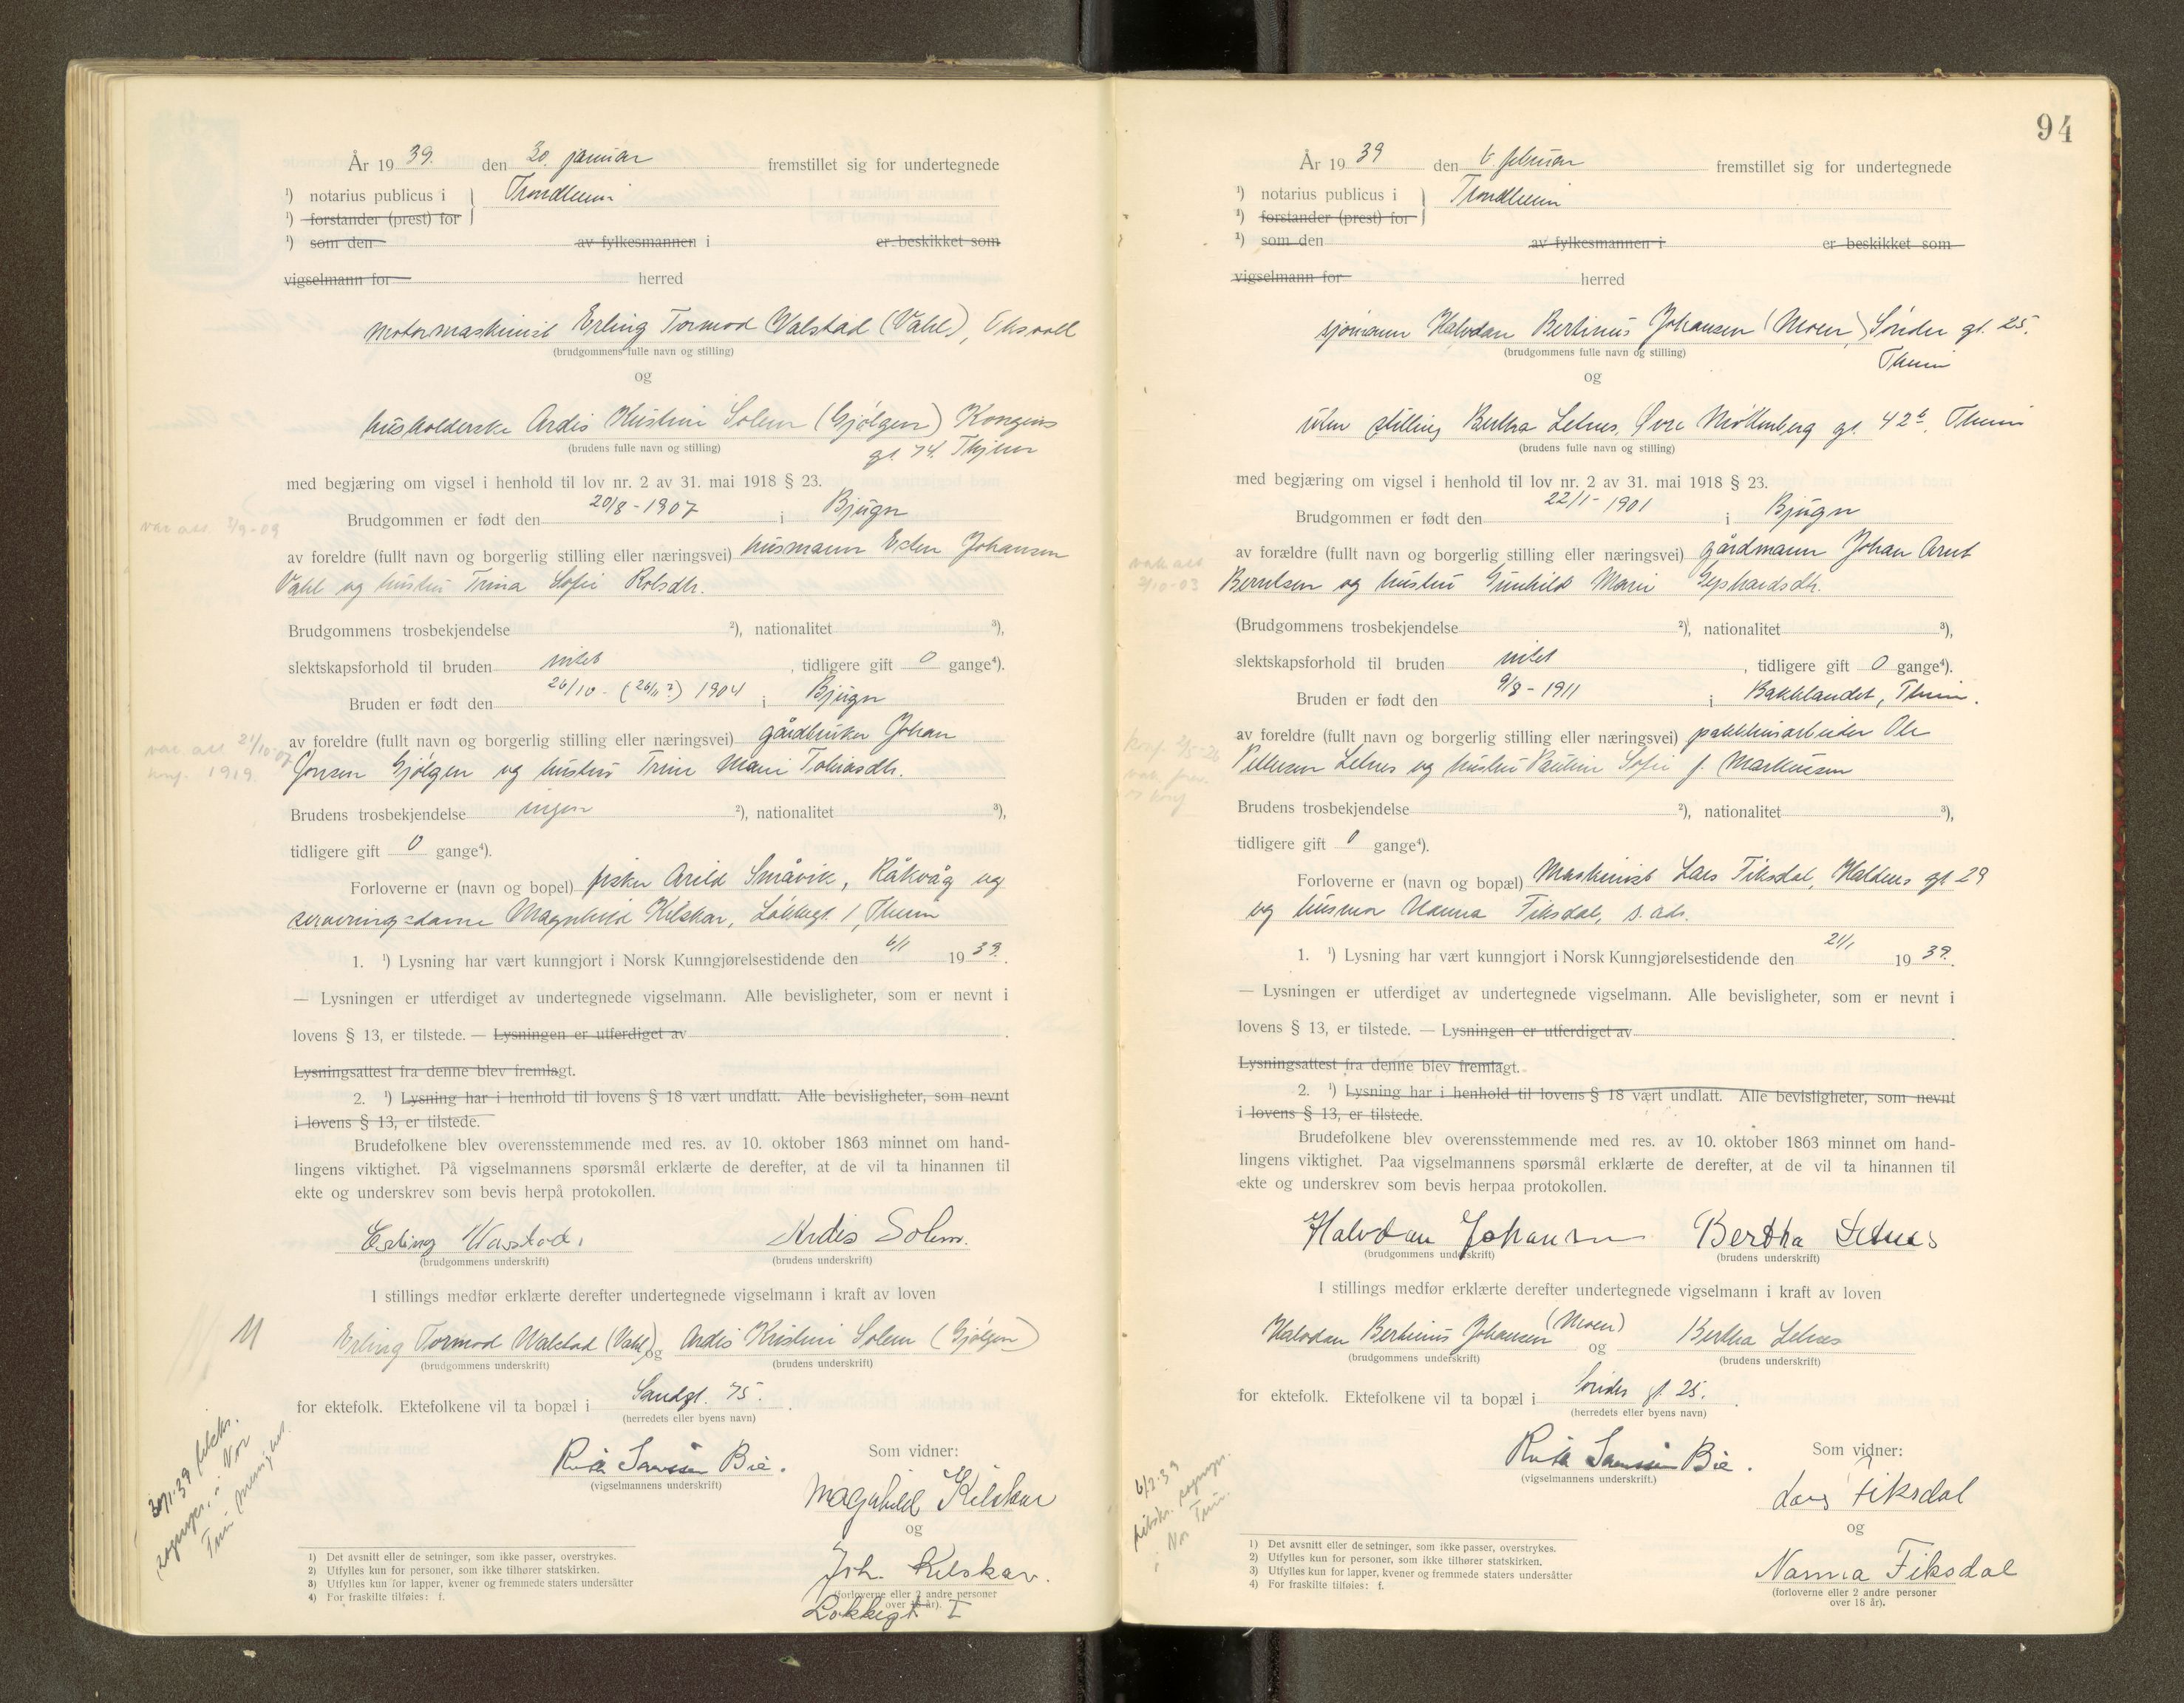 År 19 39. den 30. januar fremstillet sig for undertegnede
¹) notarius publicus i } Trondheim
¹) forstander (prest) for
¹) som den av fylkesmannen i er beskikket som
vigselmann for herred
motormaskinist Erling Tormod Walstad (Vahl),
(brudgommens fulle navn og stilling)
og
husholderske Ardis Kristine Solem (Gjølgen) Kongens
gt. 74. Thjem
(brudens fulle navn og stilling)
med begjæring om vigsel i henhold til lov nr. 2 av 31. mai 1918 § 23.
Brudgommen er født den 20/8 - 1907 i Bjugn
av foreldre (fullt navn og borgerlig stilling eller næringsvei) husmann Esten Johansen
Vahl og hustru Trina Sofie Rolsdtr.
Brudgommens trosbekjendelse ²), nationalitet ³),
slektskapsforhold til bruden intet , tidligere gift 0 gange⁴).
Bruden er født den 26/10 - (26/11 ?) 1904 i Bjugn
av foreldre (fullt navn og borgerlig stilling eller næringsvei) gårdbruker Johan
Jonsen Gjølgen og hustru Trine Marie Tobiasdtr.
Brudens trosbekjendelse ingen ²), nationalitet ³),
tidligere gift 0 gange⁴).
Forloverne er (navn og bopel) fisker Arild Småvik, Råkvåg og
serveringsdame Magnhild Kilskar, Lökkegt. 1, Thmm
1. ¹) Lysning har vært kunngjort i Norsk Kunngjørelsestidende den 6/1 19 39.
— Lysningen er utferdiget av undertegnede vigselmann. Alle bevisligheter, som er nevnt i
lovens § 13, er tilstede. — Lysningen er utferdiget av
Lysningsattest fra denne blev fremlagt.
2. ¹) Lysning har i henhold til lovens § 18 vært undlatt. Alle bevisligheter, som nevnt
i lovens § 13, er tilstede.
Brudefolkene blev overensstemmende med res. av 10. oktober 1863 minnet om hand-
lingens viktighet. På vigselmannens spørsmål erklærte de derefter, at de vil ta hinannen til
ekte og underskrev som bevis herpå protokollen.
Erling Walstad. Ardis Solem.
(brudgommens underskrift) (brudens underskrift)
I stillings medfør erklærte derefter undertegnede vigselmann i kraft av loven
Erling Tormod Walstad (Vahl) og Ardis Kristine Solem (Gjølgen)
(brudgommens underskrift) (brudens underskrift)
for ektefolk. Ektefolkene vil ta bopæl i Sandgt. 75.
(herredets eller byens navn)
Som vidner:
(vigselmannens underskrift)
Magnhild Kilskar
og
Joh. Kilskar.
(forloverne eller 2 andre personer
over 18 år).
Løkkegt I
¹) Det avsnitt eller de setninger, som ikke passer, overstrykes.
²) Utfylles kun for personer, som ikke tilhører statskirken.
³) Utfylles kun for lapper, kvener og fremmede staters undersåtter
⁴) For fraskilte tilføies: f.
94
År 19 39 den 6. februar fremstillet sig for undertegnede
¹) notarius publicus i } Trondheim
¹) forstander (prest) for
¹) som den av fylkesmannen i er beskikket som
vigselmann for herred
sjømann Halvdan Bertinus Johansen (Moen) Sonder gt. 25.
Thmm
(brudgommens fulle navn og stilling)
og
uten stilling Bertha Letnes, Øvre Møllenberg gt. 42 b, Thmm
(brudens fulle navn og stilling)
med begjæring om vigsel i henhold til lov nr. 2 av 31. mai 1918 § 23.
Brudgommen er født den 22/1 - 1901 i Bjugn
av forældre (fullt navn og borgerlig stilling eller næringsvei) gårdmann Johan Arnt
Berntsen og hustru Gunhild Marie Gerhardsdtr.
(Brudgommens trosbekjendelse ²), nationalitet ³),
slektskapsforhold til bruden intet , tidligere gift 0 gange⁴).
Bruden er født den 9/8 - 1911 i Bakklandet, Thmm.
av foreldre (fullt navn og borgerlig stilling eller næringsvei) pakkhusarbeider Ole
Pettersen Letnes og hustru Pauline Sofie f. Markussen
Brudens trosbekjendelse ²), nationalitet ³),
tidligere gift 0 gange⁴).
Forloverne er (navn og bopæl) Maskinist Lars Fiksdal, Haldens gt 29
og husmor Nanna Fiksdal, s. ads.
1. ¹) Lysning har vært kunngjort i Norsk Kunngjørelsestidende den 21/1 19 39.
— Lysningen er utferdiget av undertegnede vigselmann. Alle bevisligheter, som er nevnt i
lovens § 13, er tilstede. — Lysningen er utferdiget av
Lysningsattest fra denne blev fremlagt.
2. ¹) Lysning har i henhold til lovens § 18 vært undlatt. Alle bevisligheter, som nevnt
i lovens § 13, er tilstede.
Brudefolkene blev overensstemmende med res. av 10. oktober 1863 minnet om hand-
lingens viktighet. Paa vigselmannens spørsmål erklærte de derefter, at de vil ta hinannen til
ekte og underskrev som bevis herpaa protokollen.
Halvdan Johansen Bertha Letnes
(brudgommens underskrift) (brudens underskrift)
I stillings medfør erklærte derefter undertegnede vigselmann i kraft av loven
Halvdan Bertinus Johansen (Moen) og Bertha Letnes
(brudgommens underskrift) (brudens underskrift)
for ektefolk. Ektefolkene vil ta bopæl i Sonder gt. 25.
(herredets eller byens navn)
Som vidner:
(vigselmannens underskrift.)
Lars Fiksdal
og
Nanna Fiksdal
(forloverne eller 2 andre personer
over 18 år).
¹) Det avsnitt eller de setninger, som ikke passer, overstrykes.
²) Utfylles kun for personer, som ikke tilhører statskirken.
³) Utfylles kun for lapper, kvener og fremmede staters undersåtter
⁴) For fraskilte tilføies: f.